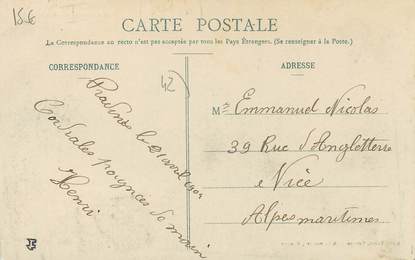 15€
CARTE POSTALE
La Correspondance au recto n'est pas acceptée par tous les Pays Étrangers. (Se renseigner à la Poste.)
CORRESPONDANCE
42
le 21 avril 1904
Cordiales poignées de main
Henri
ADRESSE
Mr Emmanuel Nicolas
39 Rue d'Angleterre
Nice
Alpes maritimes